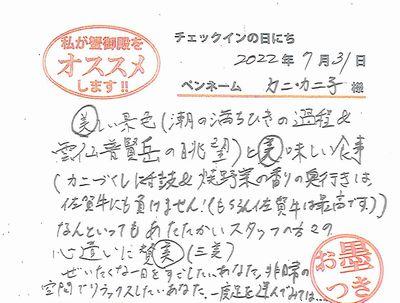 私が蟹御殿を
オススメ
します!!
チェックインの日にち
2022年 7月 31日
ペンネーム カニ・カニ子 様
美しい景色(潮の満ちひきの過程&
雲仙普賢岳の眺望)と美味しい食事
(カニづくし袱鼓&焼野菜の香りの奥行きは、
佐賀牛にも負けません!(もちろん佐賀牛は最高です。))
なんといってもあたたかいスタッフの方々の
心遣いに賛美(三美)
ぜいたくな一日をすごしたいあなた、非日常の
空間でリラックスしたいあなた、一度足を運んでみては…
お墨
つき